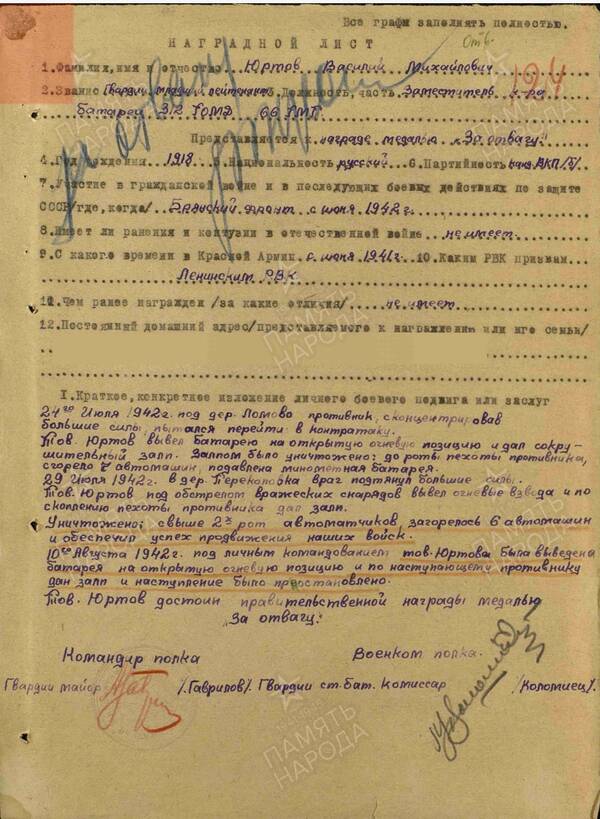 Все графы заполнять полностью.
НАГРАДНОЙ ЛИСТ
Отв.
124
1.Фамилия, имя и отчество Юртов Василий Михайлович
2.Звание Гвардии младший лейтенант 3.Должность, часть Заместитель к-ра
батареи 312 ОГМД 66 ГМП
Представляется к награде медалью "За отвагу".
4.Год рождения 1918 5.Национальность русский 6.Партийность ВКП/б/
7.Участие в гражданской войне и в последующих боевых действиях по защите
СССР/где, когда/ Брянский фронт с июня 1942г.
8.Имеет ли ранения и контузии в отечественной войне не имеет.
9.С какого времени в Красной Армии с июня 1941г. 10.Каким РВК призван
Ленинским РВК
11.Чем ранее награжден /за какие отличия/ не имеет
12.Постоянный домашний адрес/представляемого к награждению или его семьи/
I.Краткое, конкретное изложение личного боевого подвига или заслуг
24го Июля 1942г. под дер. Ломово противник, сконцентрировав
большие силы, пытался перейти в контратаку.
Тов. Юртов вывел батарею на открытую огневую позицию и дал сокру-
шительный залп. Залпом было уничтожено: до роты пехоты противника,
сгорело 7 автомашин, подавлена минометная батарея.
29 Июля 1942г. в дер. Перекоповка враг подтянул большие силы.
Тов. Юртов под обстрелом вражеских снарядов вывел огневые взвода и по
скоплению пехоты противника дал залп.
Уничтожено: свыше 2х рот автоматчиков, загорелось 6 автомашин
и обеспечил успех продвижения наших войск.
10го Августа 1942г. под личным командованием тов. Юртова была выведена
батарея на открытую огневую позицию и по наступающему противнику
дан залп и наступление было приостановлено.
Тов. Юртов достоин правительственной награды медалью
"За отвагу".
Командир полка Военком полка.
Гвардии майор /.Гаврилов/. Гвардии ст.бат. Комиссар /Коломиец/.
ПАМЯТЬ
НАРОДА